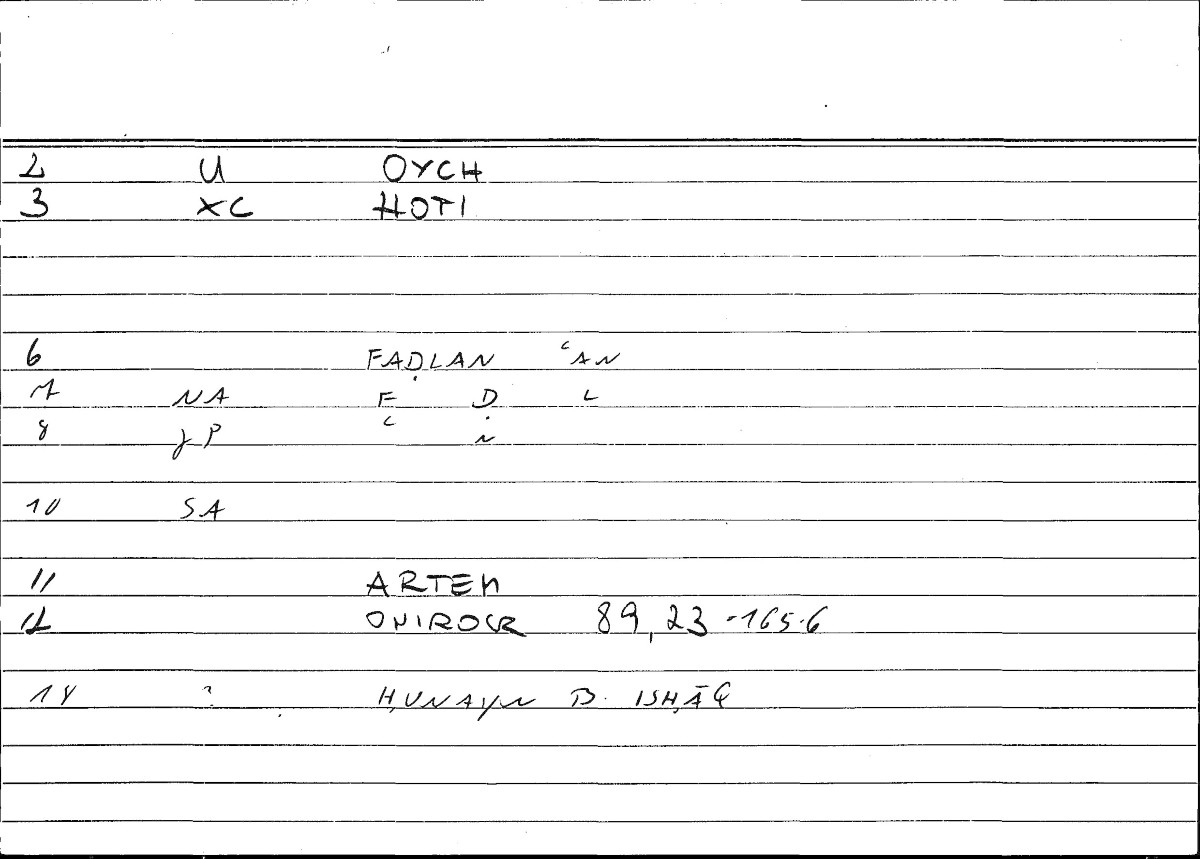 2 U OYCH
3 XC HOTI
6 FAḌLAN ʿAN
7 NA F Ḍ L
8 ʿ N
10 SA
11 ARTEM
12 ONIROCR 89,23-165.6
14 ? ḤUNAYN B. ISḤĀQ